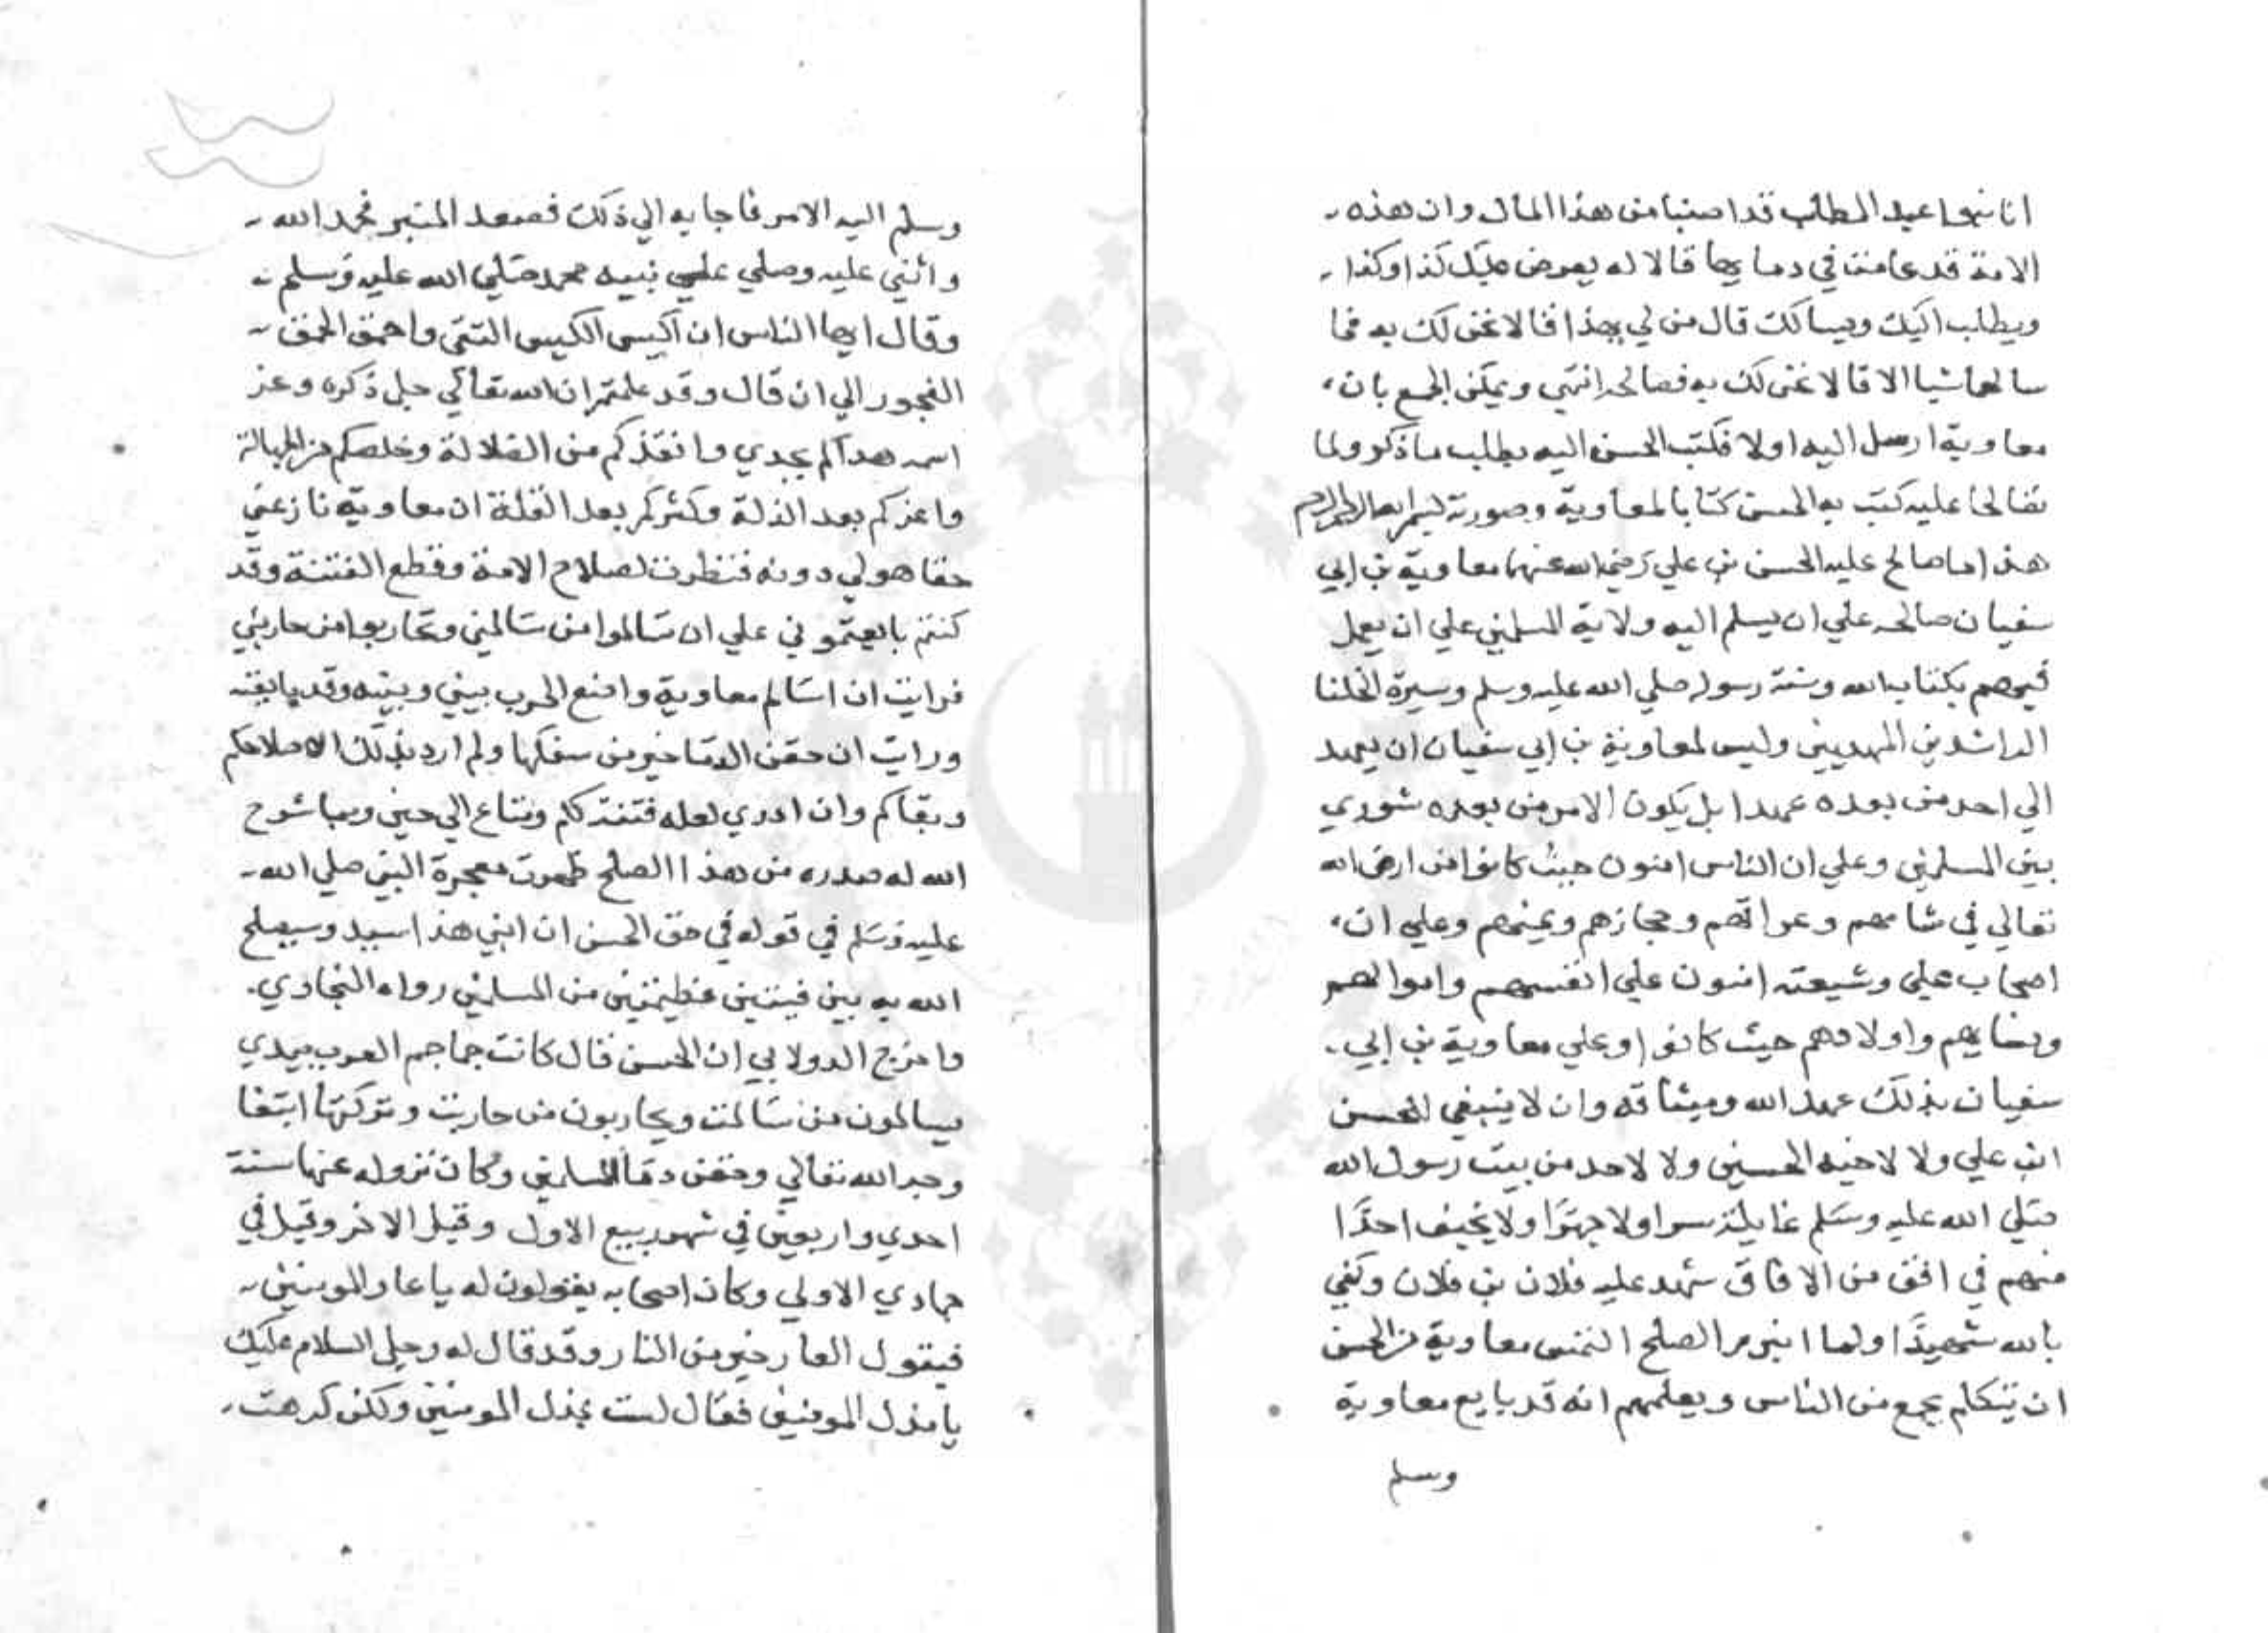 انا بنوا عبد المطلب قد اصبنا من هذا المال وان هذه
الامة قد عاثت في دمايها قالا له يعرض عليك كذا وكذا
ويطلب اليك ويسالك قال من لي بهذا قالا نحن لك به فما
سالهما شيا الا قالا نحن لك به فصالحه انتهي ويمكن الجمع بان
معاوية ارسل اليه اولا فكتب الحسن اليه يطلب ما ذكر ولما
تصالحا عليه كتب به الحسن كتابا لمعاوية وصورته بسم الله الرحمن الرحيم
هذا ما صالح عليه الحسن بن علي رضي الله عنهما معاوية بن ابي
سفيان صالحه علي ان يسلم اليه ولاية المسلمين علي ان يعمل
فيهم بكتاب الله وسنة رسوله صلي الله عليه وسلم وسيرة الخلفا
الراشدين المهديين وليس لمعاوية بن ابي سفيان ان يعهد
الي احد من بعده عهدا بل يكون الامر من بعده شوري
بين المسلمين وعلي ان الناس امنون حيث كانوا من ارض الله
تعالي في شامهم وعراقهم وحجازهم ويمنهم وعلي ان
اصحاب علي وشيعته امنون علي انفسهم واموالهم
ونسايهم واولادهم حيث كانوا وعلي معاوية بن ابي
سفيان بذلك عهد الله وميثاقه وان لا ينبغي للحسن
ابن علي ولا لاخيه الحسين ولا لاحد من بيت رسول الله
صلي الله عليه وسلم غايلة سرا ولا جهرا ولا يخيف احدا
منهم في افق من الافاق شهد عليه فلان بن فلان وكفي
بالله شهيدا ولما انبرم الصلح التمس معاوية من الحسن
ان يتكلم بجمع من الناس ويعلمهم انه قد بايع معاوية
وسلم
وسلم اليه الامر فاجابه الي ذلك فصعد المنبر فحمد الله
واثني عليه وصلي علي نبيه محمد صلي الله عليه وسلم
وقال ايها الناس ان اكيس الكيس التقي واحمق الحمق
الفجور الي ان قال وقد علمتم ان الله تعالي جل ذكره وعز
اسمه هداكم بجدي وانقذكم من الضلالة وخلصكم من الجهالة
واعزكم بعد الذلة وكثركم بعد القلة ان معاوية نازعني
حقا هو لي دونه فنظرت لصلاح الامة وقطع الفتنة وقد
كنتم بايعتموني علي ان تسالموا من سالمني وتحاربوا من حاربني
فرايت ان اسالم معاوية واضع الحرب بيني وبينه وقد بايعته
ورايت ان حقن الدما خير من سفكها ولم ارد بذلك الا صلاحكم
وبقاكم وان ادري لعله فتنة لكم ومتاع الي حين ومما شرح
الله له صدره من هذا الصلح ظهرت معجزة النبي صلي الله
عليه وسلم في قوله في حق الحسن ان ابني هذا سيد وسيصلح
الله به بين فيتين عظيمتين من المسلمين رواه البخاري
واخرج الدولابي ان الحسن قال كانت جماجم العرب بيدي
يسالمون من سالمت ويحاربون من حاربت وتركتها ابتغا
وجه الله تعالي وحقن دما المسلمين وكان نزوله عنها سنة
احدي واربعين في شهر ربيع الاول وقيل الاخر وقيل في
جمادي الاولي وكان اصحابه يقولون له يا عار المومنين
فيقول العار خير من النار وقد قال له رجل السلام عليك
يا مذل المومنين فقال لست بمذل المومنين ولكن كرهت